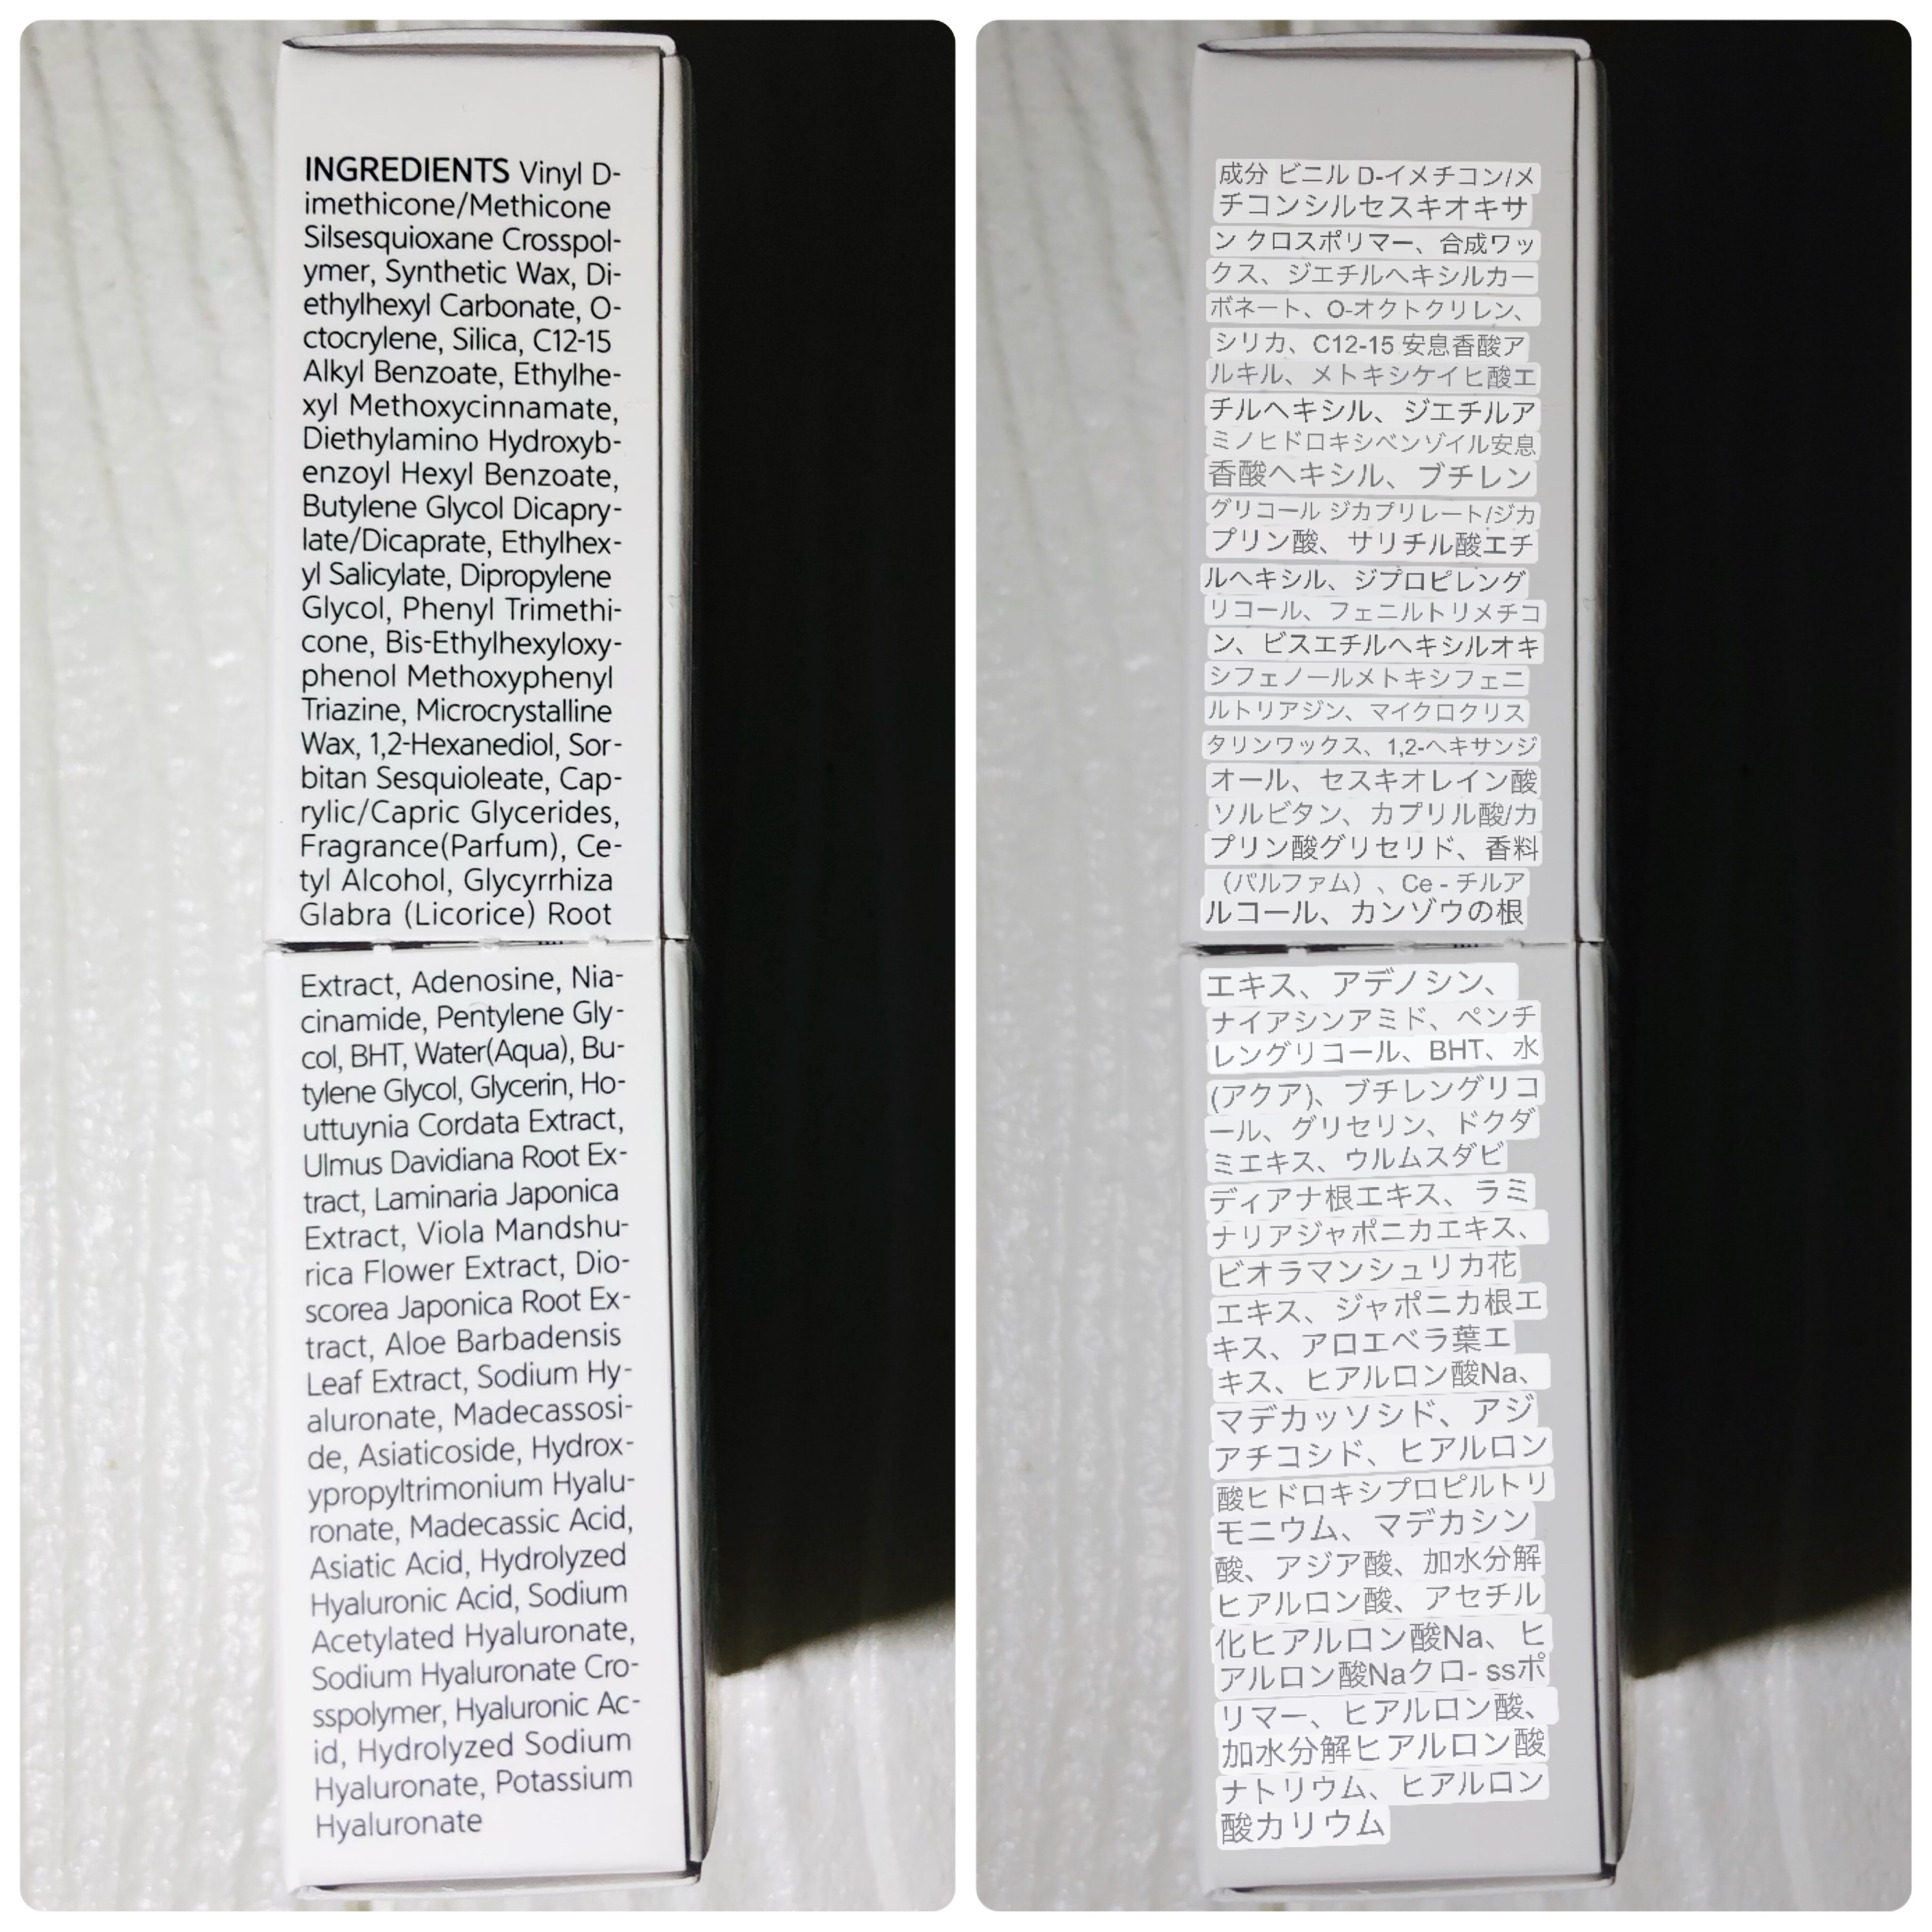 INGREDIENTS Vinyl D-
imethicone/Methicone
Silsesquioxane Crosspol-
ymer, Synthetic Wax, Di-
ethylhexyl Carbonate, O-
ctocrylene, Silica, C12-15
Alkyl Benzoate, Ethylhe-
xyl Methoxycinnamate,
Diethylamino Hydroxyb-
enzoyl Hexyl Benzoate,
Butylene Glycol Dicapry-
late/Dicaprate, Ethylhex-
yl Salicylate, Dipropylene
Glycol, Phenyl Trimethi-
cone, Bis-Ethylhexyloxy-
phenol Methoxyphenyl
Triazine, Microcrystalline
Wax, 1,2-Hexanediol, Sor-
bitan Sesquioleate, Cap-
rylic/Capric Glycerides,
Fragrance(Parfum), Ce-
tyl Alcohol, Glycyrrhiza
Glabra (Licorice) Root
Extract, Adenosine, Nia-
cinamide, Pentylene Gly-
col, BHT, Water(Aqua), Bu-
tylene Glycol, Glycerin, Ho-
uttuynia Cordata Extract,
Ulmus Davidiana Root Ex-
tract, Laminaria Japonica
Extract, Viola Mandshu-
rica Flower Extract, Dio-
scorea Japonica Root Ex-
tract, Aloe Barbadensis
Leaf Extract, Sodium Hy-
aluronate, Madecassosi-
de, Asiaticoside, Hydrox-
ypropyltrimonium Hyalu-
ronate, Madecassic Acid,
Asiatic Acid, Hydrolyzed
Hyaluronic Acid, Sodium
Acetylated Hyaluronate,
Sodium Hyaluronate Cro-
sspolymer, Hyaluronic Ac-
id, Hydrolyzed Sodium
Hyaluronate, Potassium
Hyaluronate
成分 ビニル D-イメチコン/メ
チコンシルセスキオキサ
ン クロスポリマー、合成ワッ
クス、ジエチルヘキシルカー
ボネート、O-オクトクリレン、
シリカ、C12-15 安息香酸ア
ルキル、メトキシケイヒ酸エ
チルヘキシル、ジエチルア
ミノヒドロキシベンゾイル安息
香酸ヘキシル、ブチレン
グリコール ジカプリレート/ジカ
プリン酸、サリチル酸エチ
ルヘキシル、ジプロピレング
リコール、フェニルトリメチコ
ン、ビスエチルヘキシルオキ
シフェノールメトキシフェニ
ルトリアジン、マイクロクリス
タリンワックス、1,2-ヘキサンジ
オール、セスキオレイン酸
ソルビタン、カプリル酸/カ
プリン酸グリセリド、香料
（パルファム）、Ce - チルア
ルコール、カンゾウの根
エキス、アデノシン、
ナイアシンアミド、ペンチ
レングリコール、BHT、水
(アクア)、ブチレングリコ
ール、グリセリン、ドクダ
ミエキス、ウルムスダビ
ディアナ根エキス、ラミ
ナリアジャポニカエキス、
ビオラマンシュリカ花
エキス、ジャポニカ根エ
キス、アロエベラ葉エ
キス、ヒアルロン酸Na、
マデカッソシド、アジ
アチコシド、ヒアルロン
酸ヒドロキシプロピルトリ
モニウム、マデカシン
酸、アジア酸、加水分解
ヒアルロン酸、アセチル
化ヒアルロン酸Na、ヒ
アルロン酸Naクロ- ssポ
リマー、ヒアルロン酸、
加水分解ヒアルロン酸
ナトリウム、ヒアルロン
酸カリウム